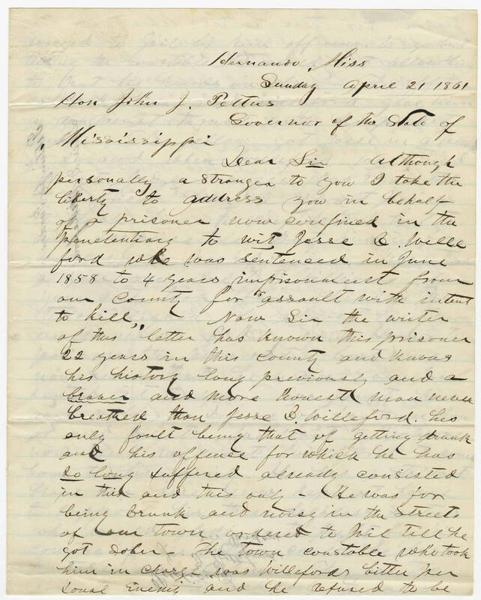 Hernando, Miss
Sunday April 21 1861
Hon John J. Pettus
Governor of the State of
Mississippi
Dear Sir Although
personally a stranger to you I take the
liberty to address you in behalf
of a prisoner now confined in the
penetentiary to wit Jesse B. Wille
ford who was sentenced in June
1858 to 4 years imprisonment from
our County for "assault with intent
to kill," Now Sir the writer
of this letter has known this prisoner
22 years in this County and knows
his history long previously and a
braver and more honest man never
breathed than Jesse B. Willeford. his
only fault being that of getting drunk
and his offense for which he has
so long suffered already consisted
in this and this only - He was for
being drunk and noisy in the streets
of our town ordered to Jail till he
got sober - The town constable who took
him in charge was Willefords bitter per
sonal enemy and he refused to be